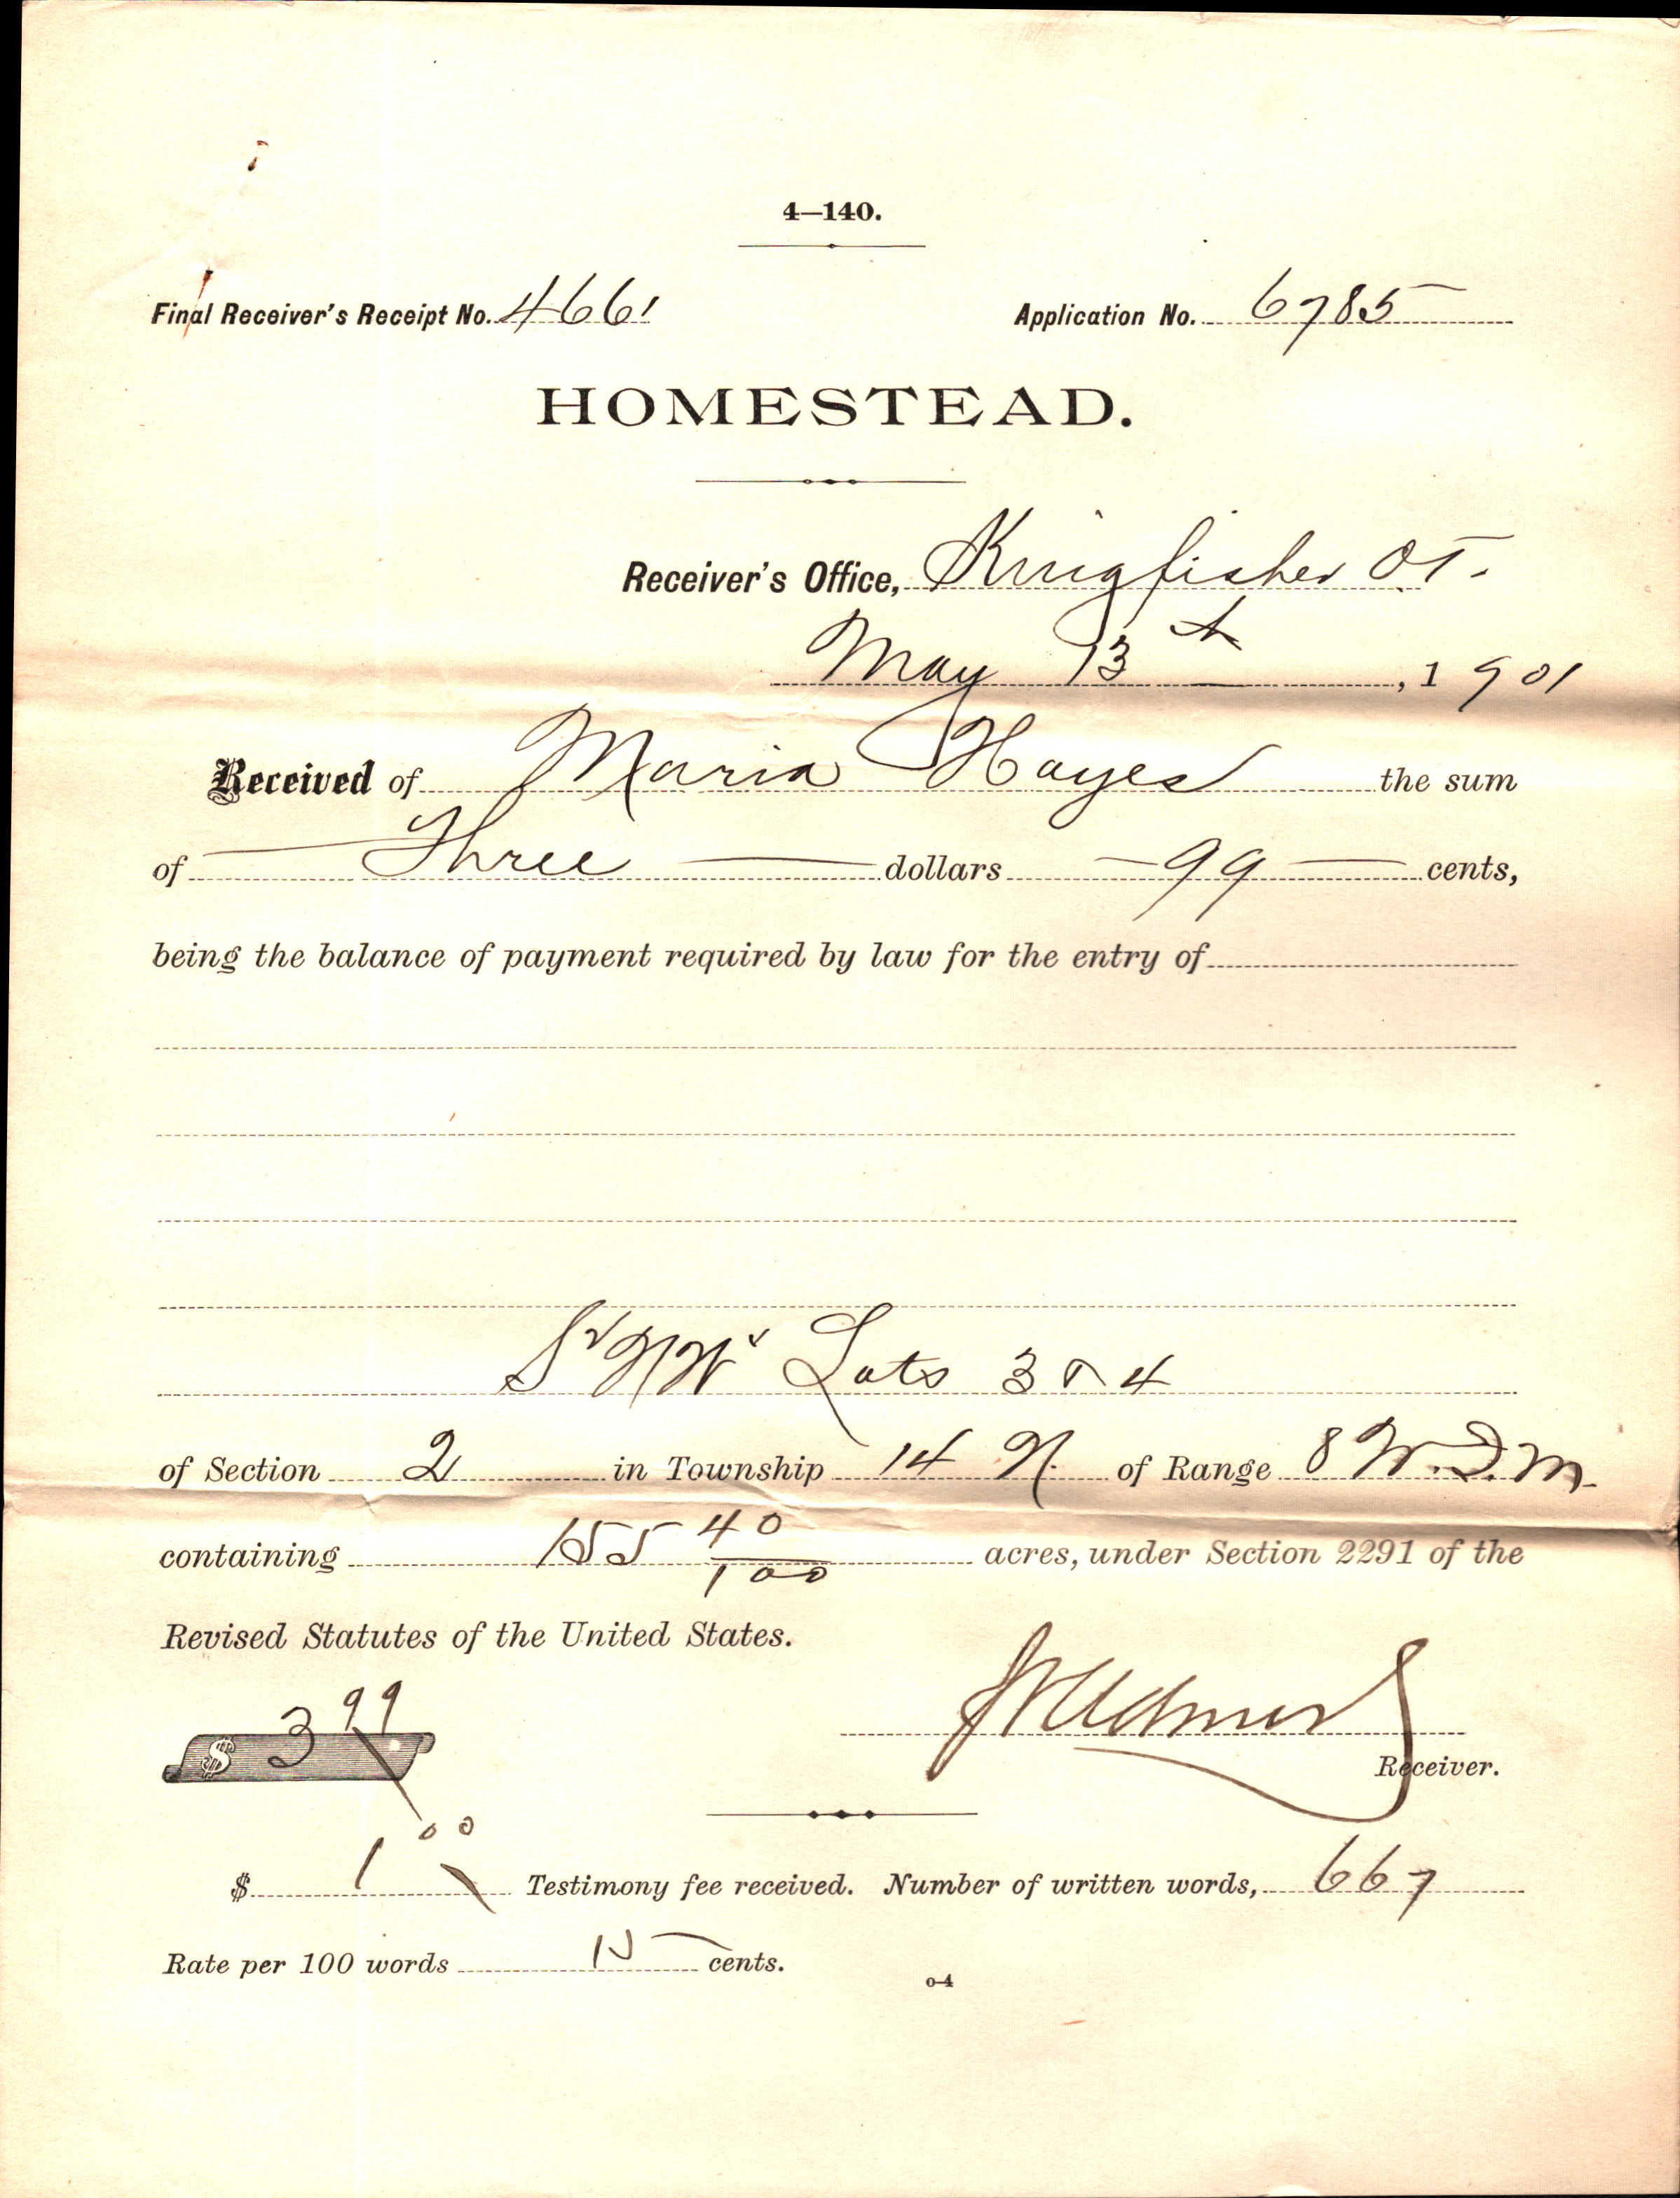 4—140.
Final Receiver's Receipt No. 4661 Application No. 6785
HOMESTEAD.
Receiver's Office, Kingfisher O.T.
May 13th, 1901
Received of Maria Hayes the sum
of Three dollars 99 cents,
being the balance of payment required by law for the entry of
S2 NW4 Lots 3 & 4
of Section 2 in Township 14 N. of Range 8 W.I.M.
containing 155 40/100 acres, under Section 2291 of the
Revised Statutes of the United States.
$ 3 99
Receiver.
$ 1 00 Testimony fee received. Number of written words, 667
Rate per 100 words 15 cents.
o-4